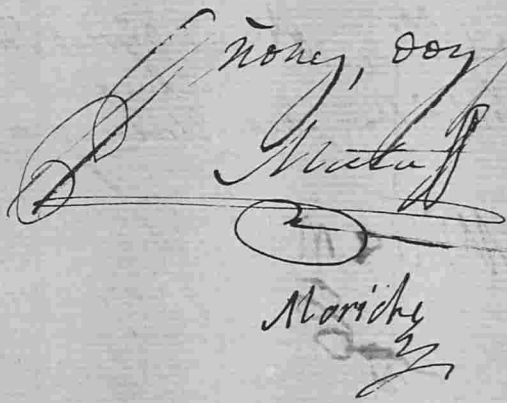 ñones, doy
Matu
Moriche